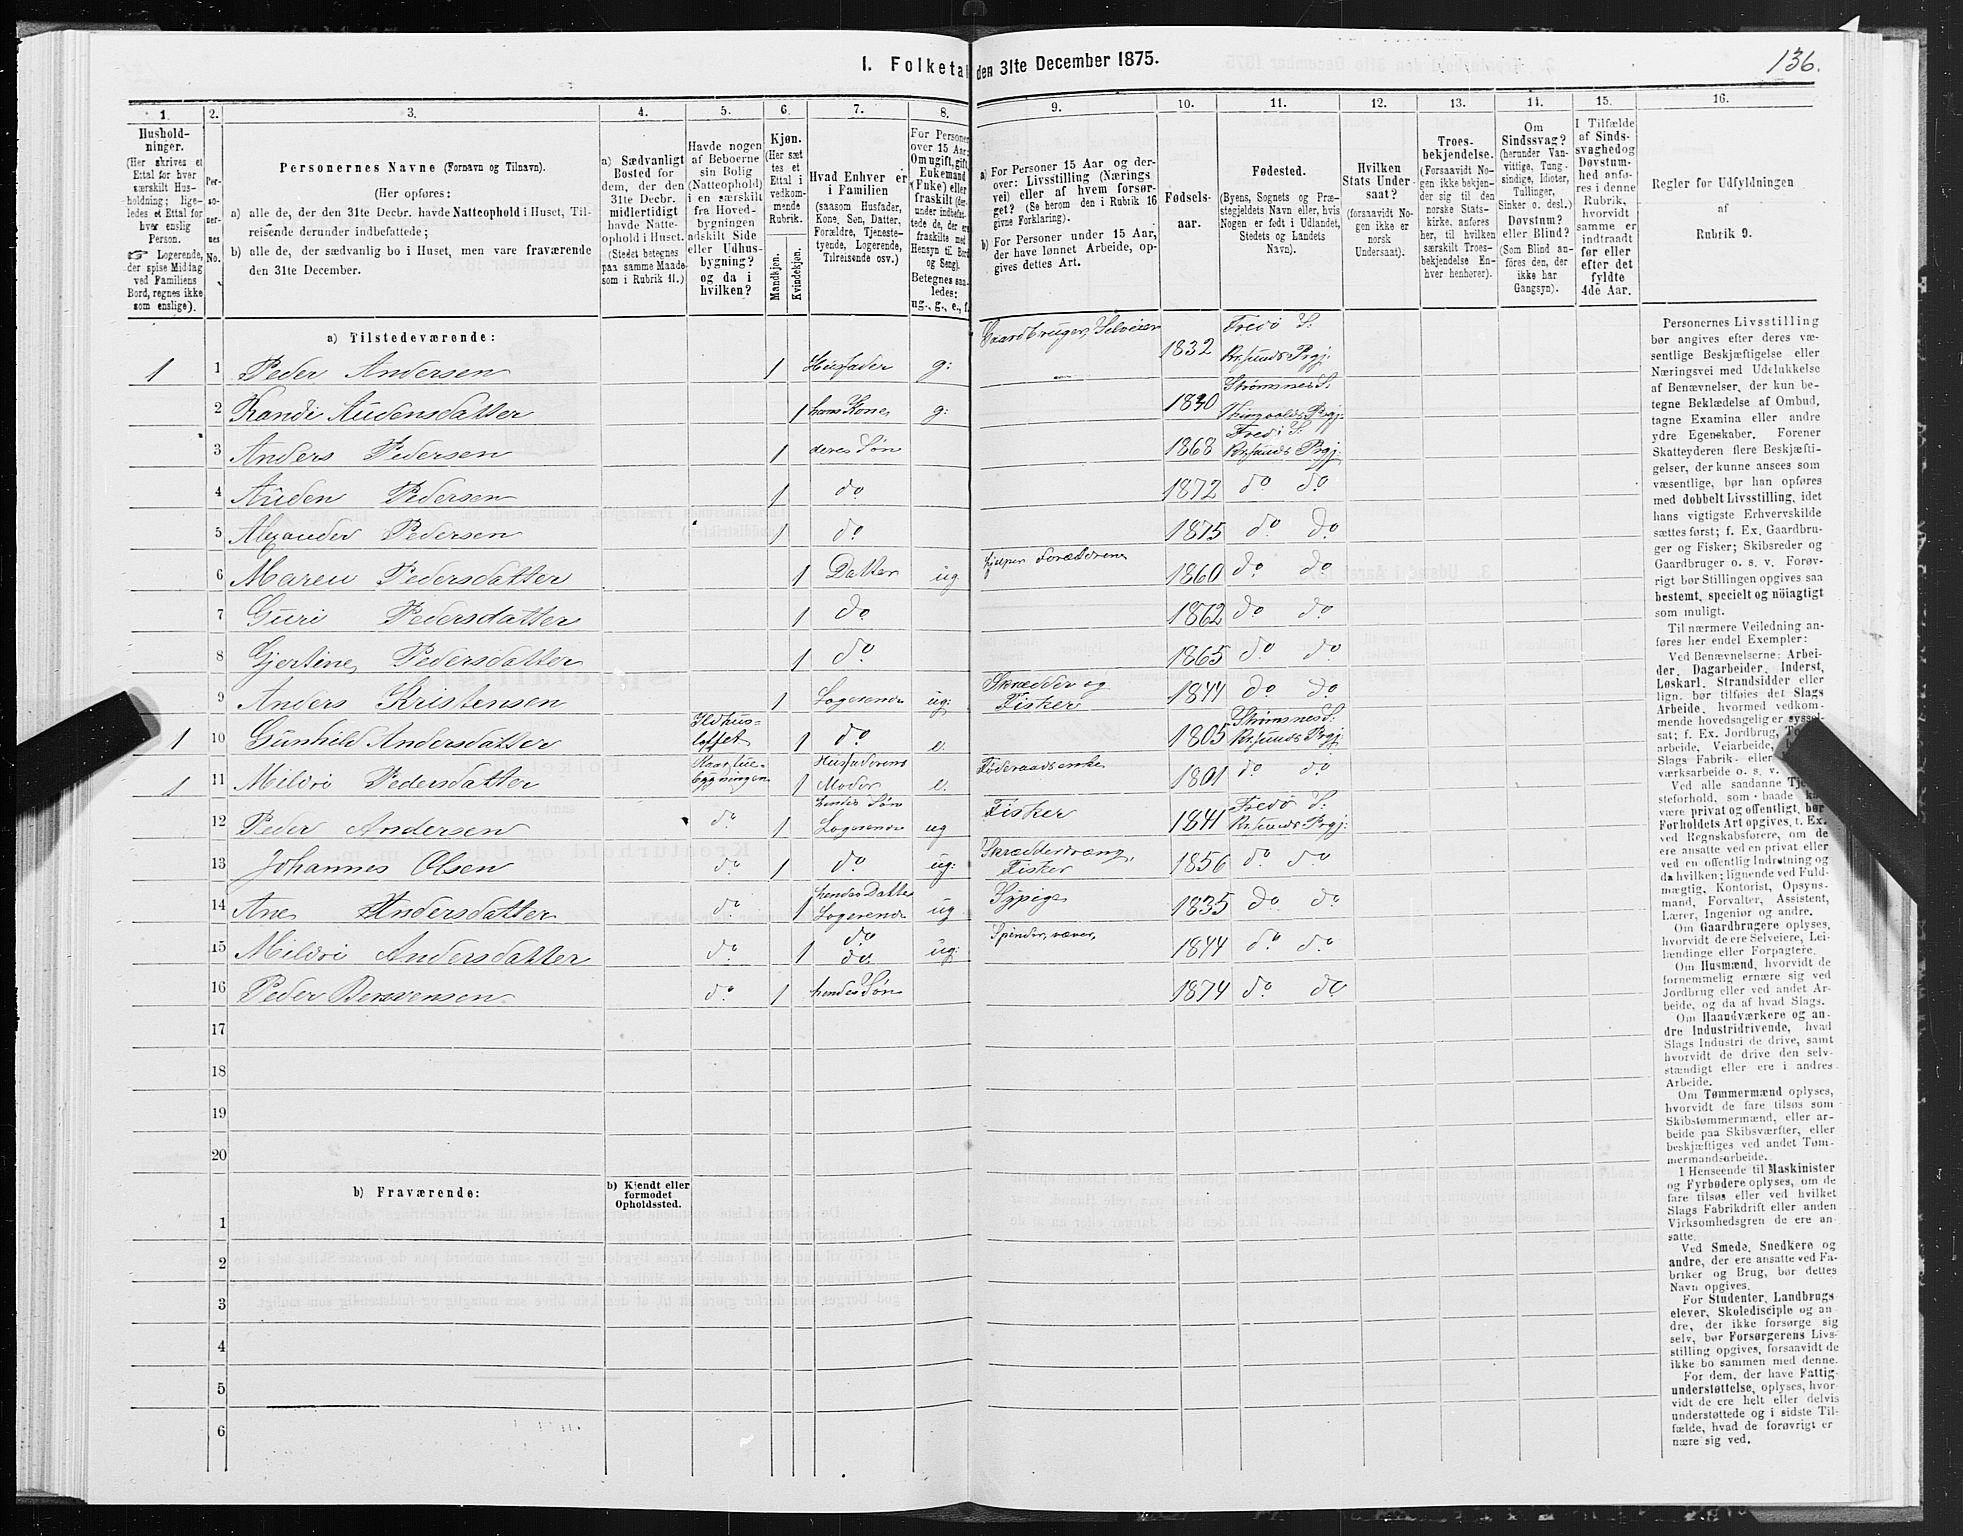 136.
I. Folketal
den 31te December 1875.
1. 2. 3. 4. 5. 6. 7. 8. 9. 10. 11. 12. 13. 14. 15. 16.
Hushold-
ninger.
(Her skrives et
Ettal for hver
særskilt Hus-
holdning; lige-
ledes et Ettal for
hver enslig
Person.
☞ Logerende,
der spise Middag
ved Familiens
Bord, regnes ikke
som enslige).
Per-
so-
ner-
nes
No.
Personernes Navne (Fornavn og Tilnavn).
(Her opføres:
a) alle de, der den 31te Decbr. havde Natteophold i Huset, Til-
reisende derunder indbefattede;
b) alle de, der sædvanlig bo i Huset, men vare fraværende
den 31te December.
a) Sædvanligt
Bosted for
dem, der den
31te Decbr.
midlertidigt
havde Natte-
ophold i Huset.
(Stedet betegnes
paa samme Maade
som i Rubrik 11.)
Havde nogen
af Beboerne
sin Bolig
(Natteophold)
i en særskilt
fra Hoved-
bygningen
adskilt Side
eller Udhus-
bygning?
og da i
hvilken?
Kjøn.
(Her sæt-
tes et
Ettal i
vedkom-
mende
Rubrik.
Mandkjøn.
Kvindekjøn.
Hvad Enhver er
i Familien
(saasom Husfader,
Kone, Søn, Datter,
Forældre, Tjeneste-
tyende, Logerende,
Tilreisende osv.)
For Personer
over 15 Aar:
Om ugift, gift,
Enkemand
(Enke) eller
fraskilt
Betegnes saa-
ledes:
ug., g., e., f.
a) For Personer 15 Aar og der-
over: Livsstilling (Nærings-
vei) eller af hvem forsør-
get? (Se herom den i Rubrik 16
givne Forklaring).
b) For Personer under 15 Aar,
der have lønnet Arbeide, op-
gives dettes Art.
Fødsels-
aar.
Fødested.
(Byens, Sognets og Præ-
stegjeldets Navn eller, hvis
Nogen er født i Udlandet,
Stedets og Landets
Navn).
Hvilken
Stats Under-
saat?
(forsaavidt No-
gen ikke er
norsk
Undersaat).
Troes-
bekjendelse.
(Forsaavidt No-
gen ikke bekjen-
der sig til den
norske Stats-
kirke, anføres
her, til hvilken
særskilt Troes-
bekjendelse En-
hver henhører).
Om
Sindssvag?
(herunder Van-
vittige, Tung-
sindige, Idioter,
Tullinger,
Sinker o. desl.)
Døvstum?
eller Blind?
(Som Blind an-
føres den, der
ikke har
Gangsyn).
I Tilfælde
af Sinds-
svaghed og
Døvstum-
hed anfø-
res i denne
Rubrik,
hvorvidt
samme er
indtraadt
før eller
efter det
fyldte
4de Aar.
Regler for Udfyldningen
af
Rubrik 9.
a) Tilstedeværende:
1 1 Peder Andersen 1 Husfader g: Gaardbruger, Selveier 1832 Fredø S: Krsunds Prgj:
2 Randi Audensdatter 1 hans Kone, g: 1830 Strømsnes S: Tingvolds Prgj:
3 Anders Pedersen 1 deres Søn 1868 Fredø S: Krsunds Prgj.
4 Auden Pedersen 1 do 1872 do do
5 Alexander Pedersen 1 do 1875 do do
6 Maren Pedersdatter 1 Datter ug hjelper Forældrene 1860 do do
7 Guri Pedersdatter 1 do 1862 do do
8 Gjertine Pedersdatter 1 do 1865 do do
9 Anders Kristensen 1 Logerende ug: Skrædder og Fisker 1844 do do
1 10 Gunhild Andersdatter Ildhus-loftet 1 do e. 1805 Strømsnes S: Krsunds Prgj:
1 11 Mildri Pedersdatter 1 Husfaderens Moder e. Føderaadsenke 1801 do do
12 Peder Andersen do 1 hendes Søn Logerende ug Fisker 1841 Fredø S: Krsunds Prgj:
13 Johannes Olsen do 1 do ug: Skrædderdreng, Fisker 1856 do do
14 Ane Andersdatter do 1 hendes Datter Logerende ug Sypige 1835 do do
15 Mildri Andersdatter do 1 do do ug: Spinder, væver, 1844 do do
16 Peder Bersvensen do 1 hendes Søn 1874 do do
17
18
19
20
b) Fraværende:
b) Kjendt eller
formodet
Opholdssted.
1
2
3
4
5
6
Personernes Livsstilling
bør angives efter deres væ-
sentlige Beskjæftigelse eller
Næringsvei med Udelukkelse
af Benævnelser, der kun be-
tegne Beklædelse af Ombud,
tagne Examina eller andre
ydre Egenskaber. Forener
Skatteyderen flere Beskjæfti-
gelser, der kunne ansees som
væsentlige, bør han opføres
med dobbelt Livsstilling, idet
hans vigtigste Erhvervskilde
sættes først; f. Ex. Gaardbru-
ger og Fisker; Skibsreder og
Gaardbruger o. s. v. Forøv-
rigt bør Stillingen opgives saa
bestemt, specielt og nöiagtigt
som muligt.
Til nærmere Veiledning an-
føres her endel Exempler:
Ved Benævnelserne: Arbei-
der, Dagarbeider, Inderst,
Løskarl, Strandsidder eller
lign. bør tilføies det Slags
Arbeide, hvormed vedkom-
mende hovedsagelig er syssel-
sat; f. Ex. Jordbrug,
arbeide, Veiarbeide,
Slags Fabrik- eller
værksarbeide o. s. v.
Ved alle saadanne Tje-
steforhold, som baade
være privat og offentligt, bør
Forholdets Art opgives, t. Ex.
ved Regnskabsførere, om de
ere ansatte ved en privat eller
ved en offentlig Indretning og
da hvilken; lignende ved Fuld-
mægtig, Kontorist, Opsyns-
mand, Forvalter, Assistent,
Lærer, Ingeniør og andre.
Om Gaardbrugere oplyses,
hvorvidt de ere Selveiere, Lei-
lændinge eller Forpagtere.
Om Husmænd, hvorvidt de
fornemmelig ernære sig ved
Jordbrug eller ved andet Ar-
beide, og da af hvad Slags.
Om Haandværkere og an-
dre Industridrivende, hvad
Slags Industri de drive, samt
hvorvidt de drive den selv-
stændigt eller ere i andres
Arbeide.
Om Tømmermænd oplyses,
hvorvidt de fare tilsøs som
Skibstømmermænd, eller ar-
beide paa Skibsværfter, eller
beskjæftiges ved andet Tøm-
mermandsarbeide.
I Henseende til Maskinister
og Fyrbødere oplyses, om de
fare tilsøs eller ved hvilket
Slags Fabrikdrift eller anden
Virksomhedsgren de ere an-
satte.
Ved Smede, Snedkere og
andre, der ere ansatte ved Fa-
briker og Brug, bør dettes
Navn opgives.
For Studenter, Landbrugs-
elever, Skoledisciple og an-
dre, der ikke forsørge sig
selv, bør Forsørgerens Livs-
stilling opgives, forsaavidt de
ikke bo sammen med denne.
For dem, der have Fattig-
understøttelse, oplyses, hvor-
vidt de ere helt eller delvis
understøttede og i sidste Til-
fælde, hvad de forøvrigt er
nære sig ved.